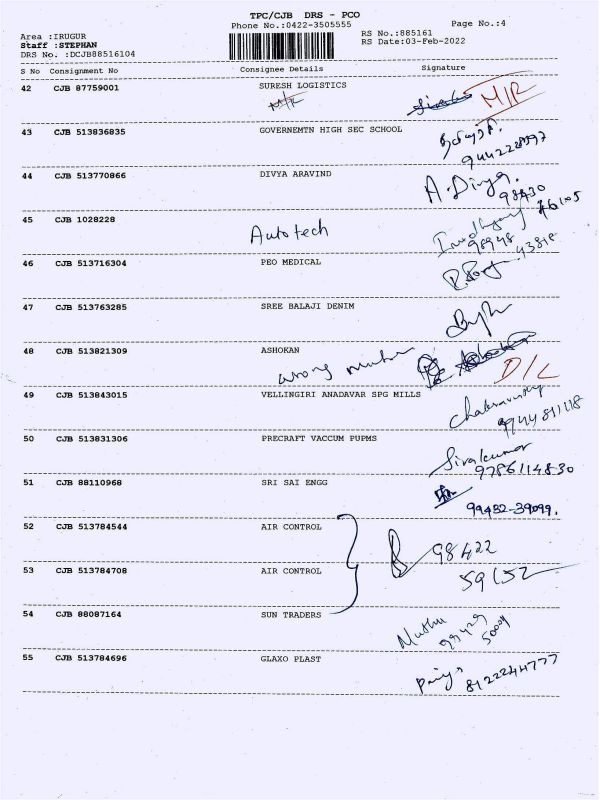 TPC/CJB DRS - PCO
Phone No.:0422-3505555
Page No.:4
Area :IRUGUR
Staff :STEPHAN
DRS No. :DCJB88516104
RS No.:885161
RS Date:03-Feb-2022
S No Consignment No Consignee Details Signature
42 CJB 87759001 SURESH LOGISTICS
M/R M/R
43 CJB 513836835 GOVERNEMTN HIGH SEC SCHOOL
44 CJB 513770866 DIVYA ARAVIND A.Divya.
98430
45 CJB 1028228 Autotech
98948 43818
46 CJB 513716304 PEO MEDICAL
47 CJB 513763285 SREE BALAJI DENIM
48 CJB 513821309 ASHOKAN
wrong number D/L
49 CJB 513843015 VELLINGIRI ANADAVAR SPG MILLS Chakravarthy
9944811118
50 CJB 513831306 PRECRAFT VACCUM PUPMS Sivakumar
9786114830
51 CJB 88110968 SRI SAI ENGG
99432-39099.
52 CJB 513784544 AIR CONTROL 98422
53 CJB 513784708 AIR CONTROL 59152
54 CJB 88087164 SUN TRADERS Muthu
99429
50009
55 CJB 513784696 GLAXO PLAST Priya
8122244777